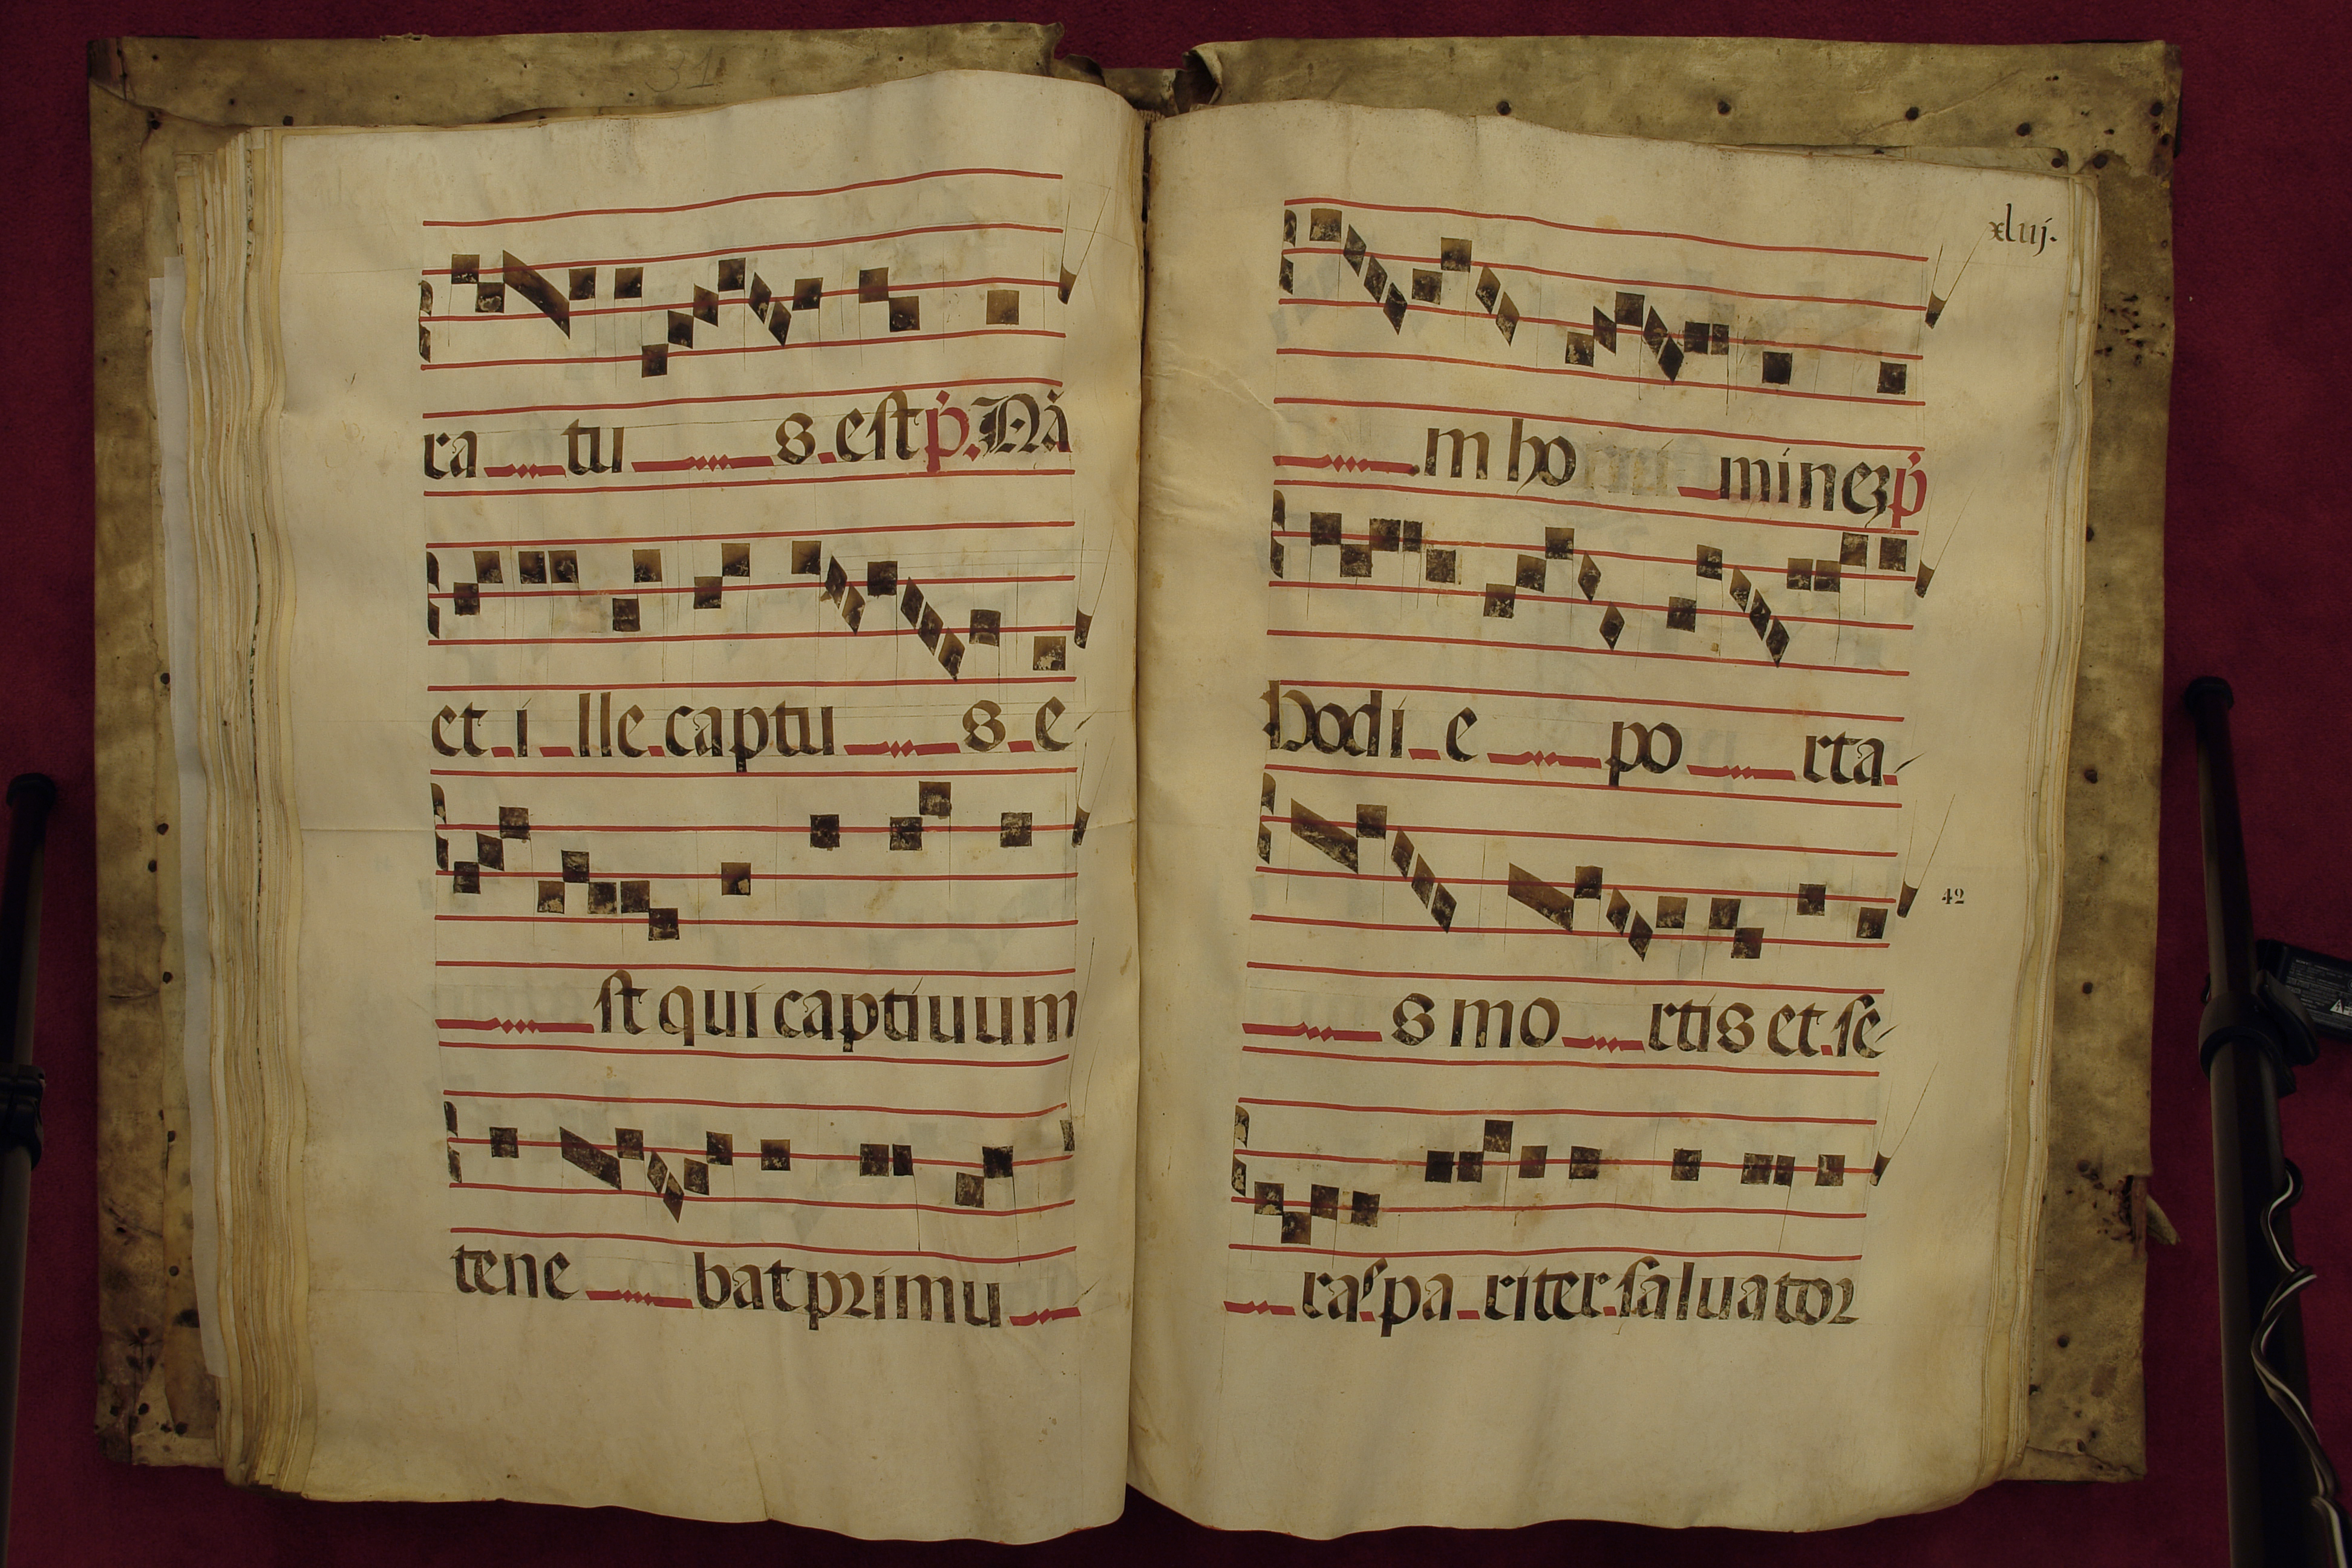 31
ra tu s est p. Nā
et i lle captu s e
st qui captiuum
tene bat primu
xliij.
m ho mineꝫ p
Hodi e po rta
s mo rtis et se
42
ras pa riter saluator